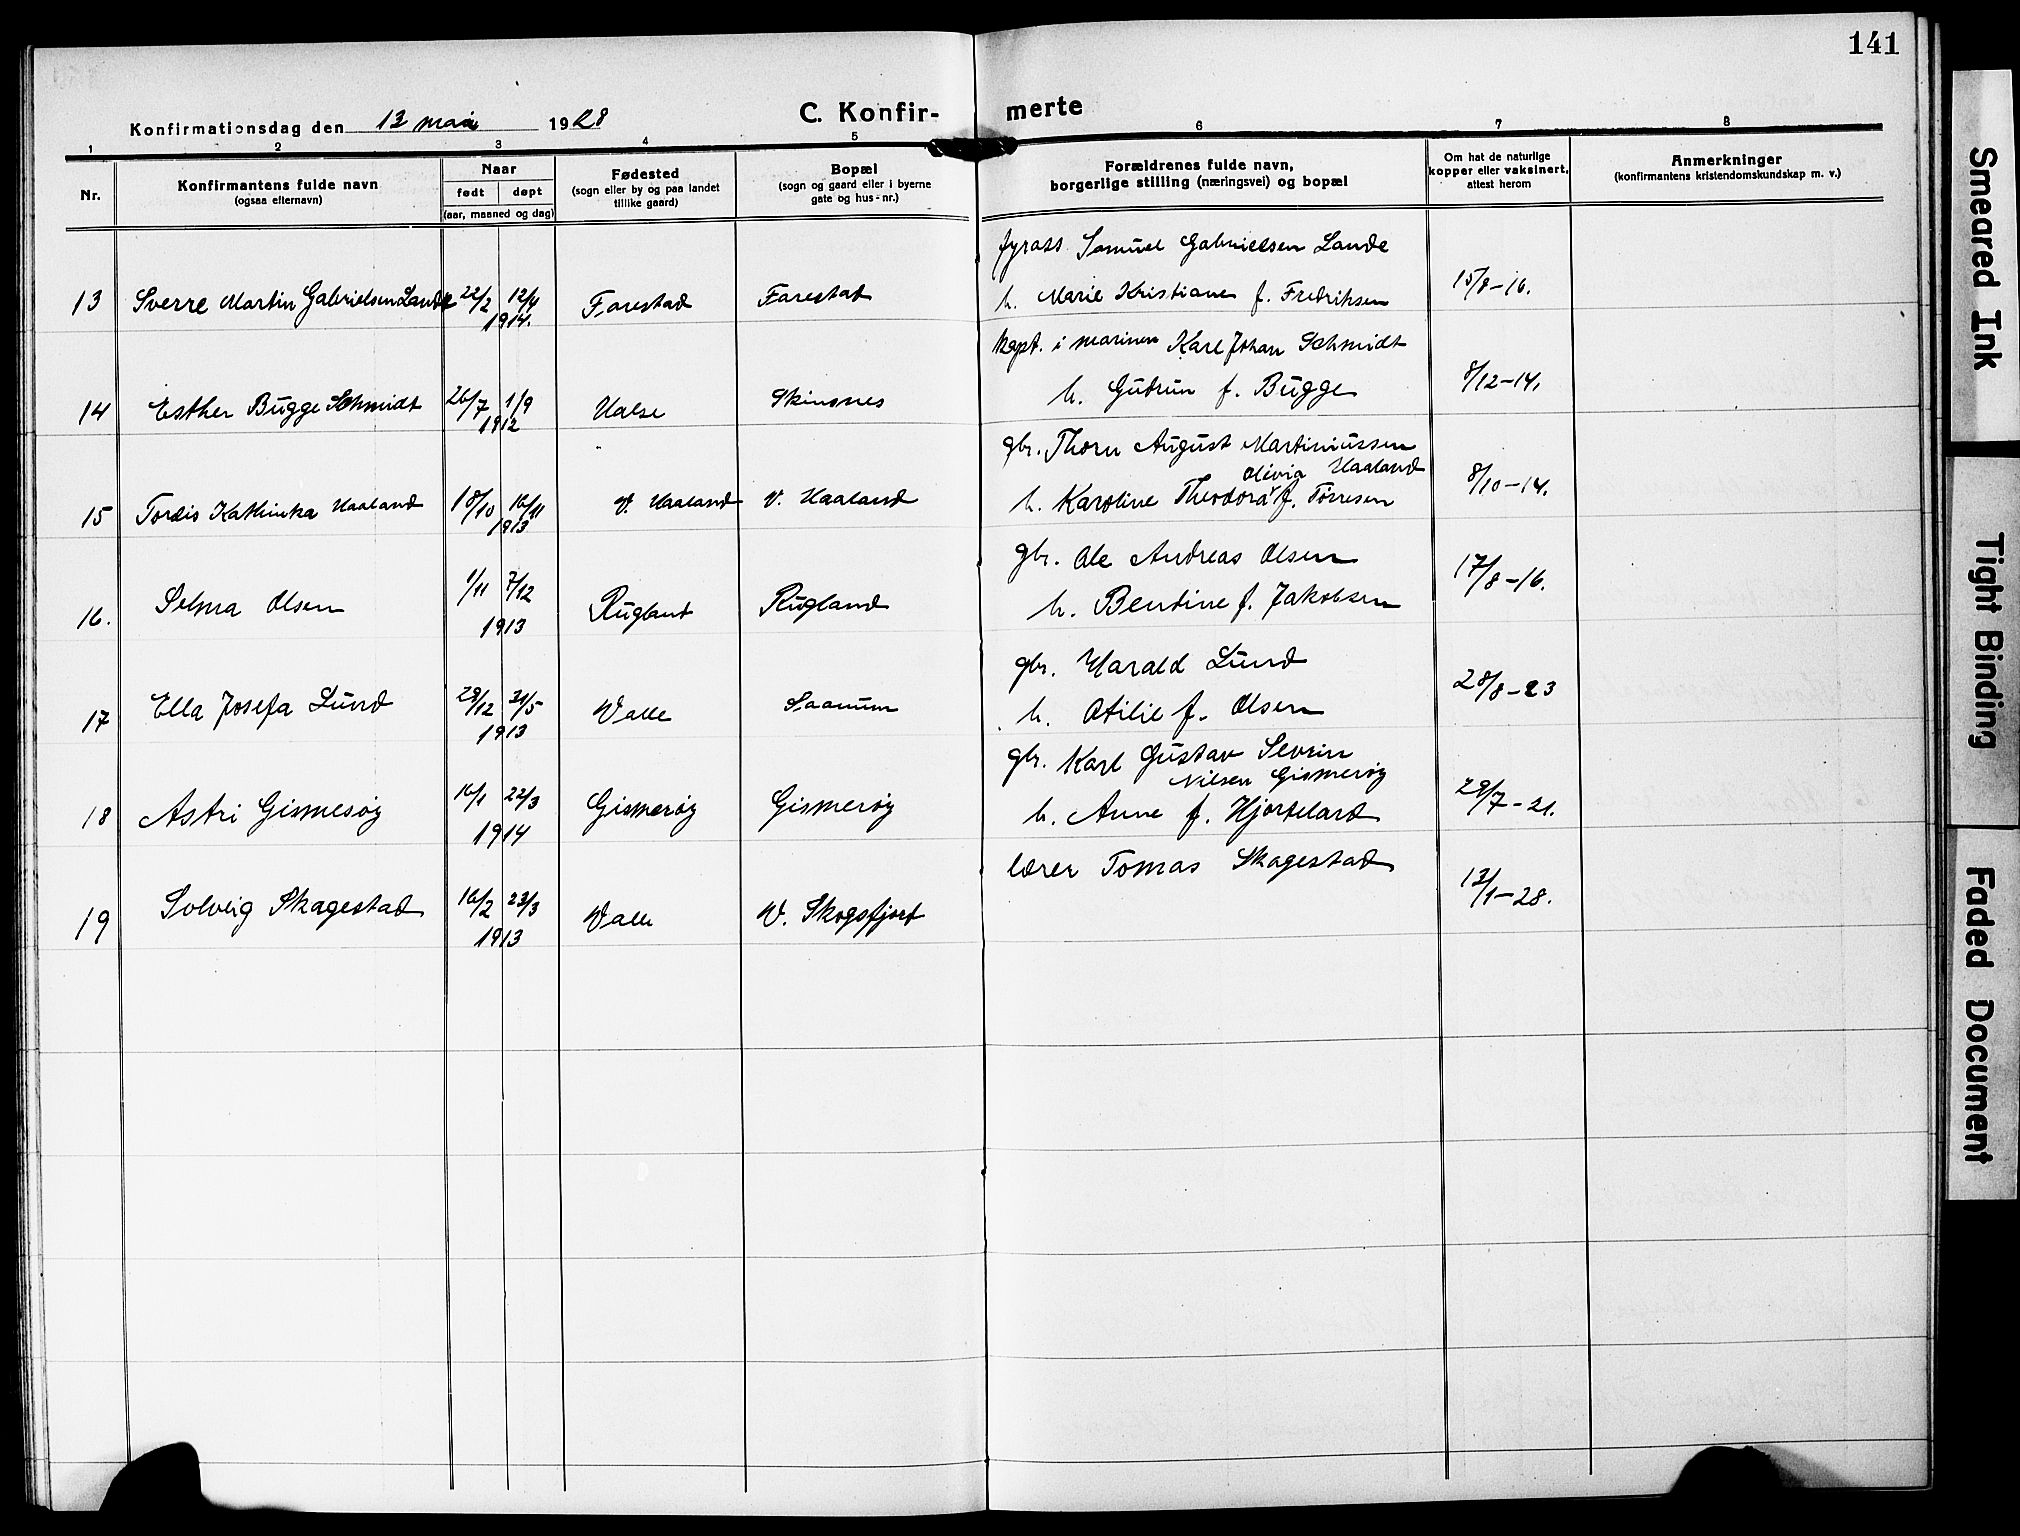 141
Konfirmationsdag den 13 mai 1928
C. Konfir- merte
1 2 3 4 5 6 7 8
Nr.
Konfirmantens fulde navn
(ogsaa efternavn)
Naar
født døpt
(aar, maaned og dag)
Fødested
(sogn eller by og paa landet
tillike gaard)
Bopæl
(sogn og gaard eller i byerne
gate og hus-nr.)
Forældrenes fulde navn,
borgerlige stilling (næringsvei) og bopæl
Om hat de naturlige
kopper eller vaksinert,
attest herom
Anmerkninger
(konfirmantens kristendomskundskap m. v.)
fyrass. Samuel Gabrielsen Lande
13 Sverre Martin Gabrielsen Lande 22/2 12/4 Farestad Farestad h. Marie Kristiane f. Fredriksen 15/8-16.
1914.
Kapt. i marinen Karl Johan Schmidt
14 Esther Bugge Schmidt 26/7 1/9 Halse Skinsnes h. Gudrun f. Bugge 8/12-14.
1912
gbr. Thorn August Martiniussen
Olivia Haaland
15 Tordis Kathinka Haaland 18/10 16/11 V. Haaland V. Haaland h. Karoline Theodora f. Tørresen 8/10-14.
1913
gbr. Ole Andreas Olsen
16. Selma Olsen 1/11 7/12 Ruglant Rugland h. Bendine f. Jakobsen 17/8-16.
1913
gbr. Harald Lund
17 Ella Josefa Lund 29/12 31/5 Valle Saanum h. Otilie f. Olsen 28/8-23
1913
gbr. Karl Gustav Sevrin
Nilsen Gismerøy
18 Astri Gismesøy 16/1 22/3 Gismerøy Gismerøy h. Anne f. Hjorteland 29/7-21.
1914
lærer Tomas Skagestad
19 Solveig Skagestad 16/2 23/3 Valle V. Skogsfjort 13/1-28.
1913
Smeared Ink
Tight Binding
Faded Document